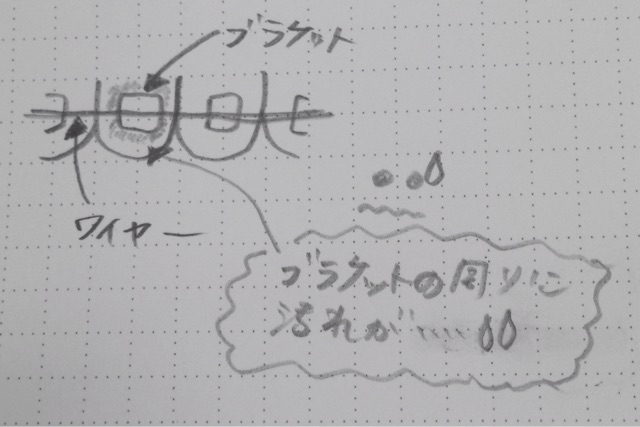 ブラケット
ワイヤー
ブラケットの周りに
汚れが……